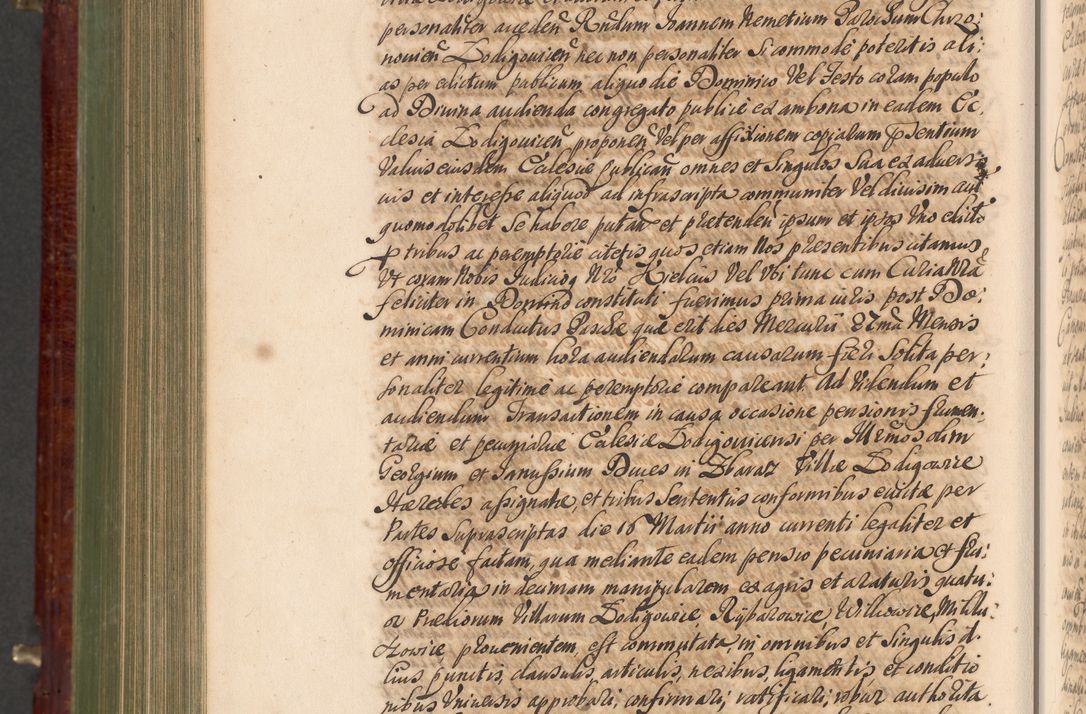 personaliter acceden Rndum Joannem Nemetium Parochum Chro:
nowien Dodigouien nec non personaliter Si commode poteritis ali:
as per edictum publicum aliquo die Dominico Vel Festo coram populo
ad Divina audienda congregato publice ex ambona in eadem Ec,
clesia Dodigouien proponen Vel per affixionem copiarum pñsentium
Valuis eiusdem Ecclesiæ publican omnes et Singulos Sua ex adverso
iuris et interesse aliquod ad infrascripta communiter Vel divisim aut
quomodolibet Se habere putan et pretenden ipsum et ipsos Uno edicto
p tribus ac peremptorie citetis quos etiam Nos præsentibus citamus
Vt coram Nobis Judicioq Nro Kielcis Vel Vbi tunc cum Curia Nra
feliciter in Domino constituti fuerimus prima iuris post Do:
minicam Conductus Paschæ quæ erit dies Mercurii 27ma Mensis
et anni currentium hora audiendarum causarum fieri Solita, per:
sonaliter legitime ac peremptorie compareant Ad Videndum et
audiendum Transactionem in causa occasione pensionis frumen.
tariæ et pecuniariæ Ecclesiæ Dodigouicensi per Illrmos olim
Georgium et Janussium Duces in Zbaraz Villæ Dodigowice
Hæredes assignatæ, et tribus Sententiis conformibus evictæ per
Partes Suprascriptas die 16 Martii anno currenti legaliter et
officiose factam, qua mediante eadem pensio pecuniaria et fru:
mentaria in decimam manipularem ex agris et araturis quatu:
or Prædiorum Villarum Dodigowice, Rybarzowice, Wilkowice, Miklu
zowice provenientem, est commutata, in omnibus et Singulis il.
lius punctis, clausulis, articulis, nexibus, ligamentis et conditio
nibus Universis approbari, confirmari, ratificari, robur authorita